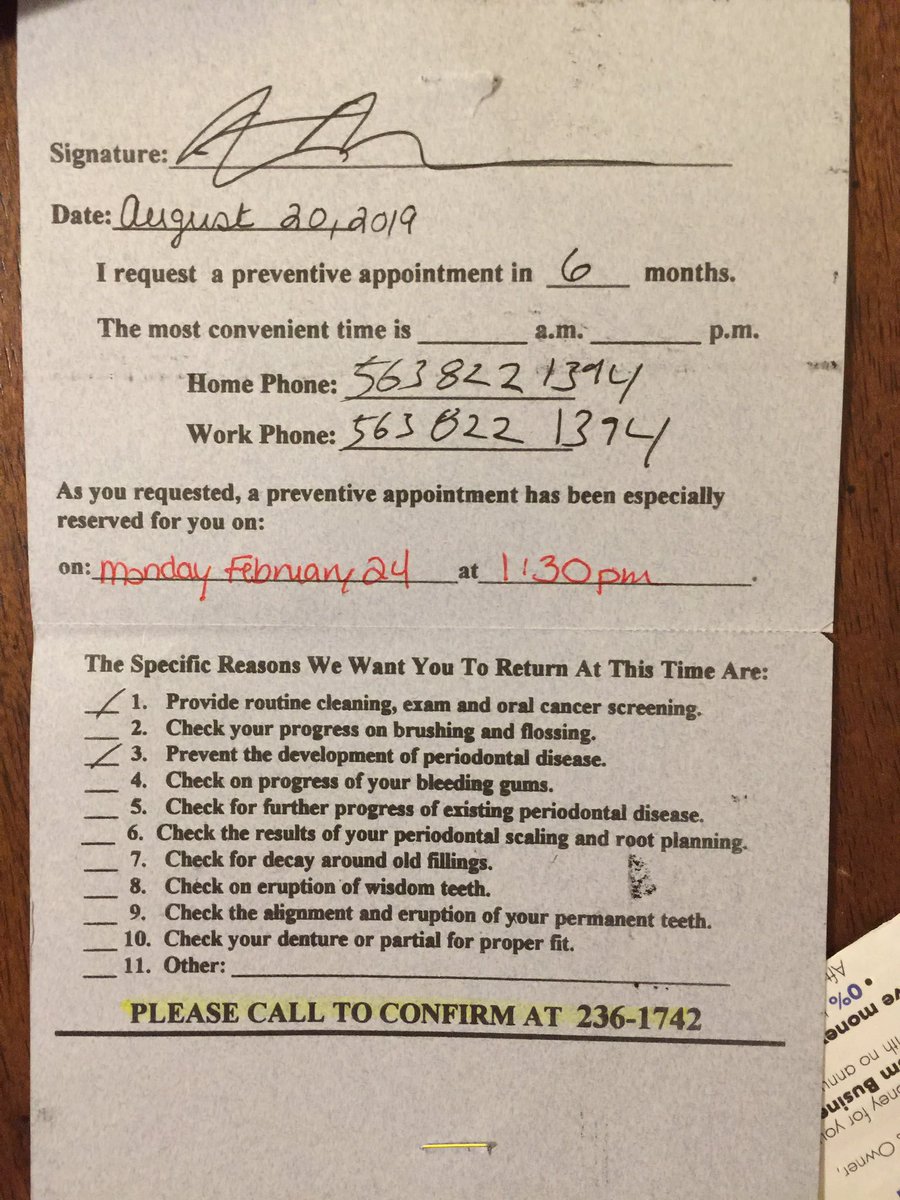 Signature:
Date: August 20, 2019
I request a preventive appointment in 6 months.
The most convenient time is ______ a.m. ______ p.m.
Home Phone: 563 822 1394
Work Phone: 563 822 1394
As you requested, a preventive appointment has been especially
reserved for you on:
on: Monday February 24 at 1:30pm.
The Specific Reasons We Want You To Return At This Time Are:
/ 1. Provide routine cleaning, exam and oral cancer screening.
__ 2. Check your progress on brushing and flossing.
/ 3. Prevent the development of periodontal disease.
__ 4. Check on progress of your bleeding gums.
__ 5. Check for further progress of existing periodontal disease.
__ 6. Check the results of your periodontal scaling and root planning.
__ 7. Check for decay around old fillings.
__ 8. Check on eruption of wisdom teeth.
__ 9. Check the alignment and eruption of your permanent teeth.
__ 10. Check your denture or partial for proper fit.
__ 11. Other: ______
PLEASE CALL TO CONFIRM AT 236-1742
Owner,
ney for you
om Busine
ith no annu
ve money
• 0%